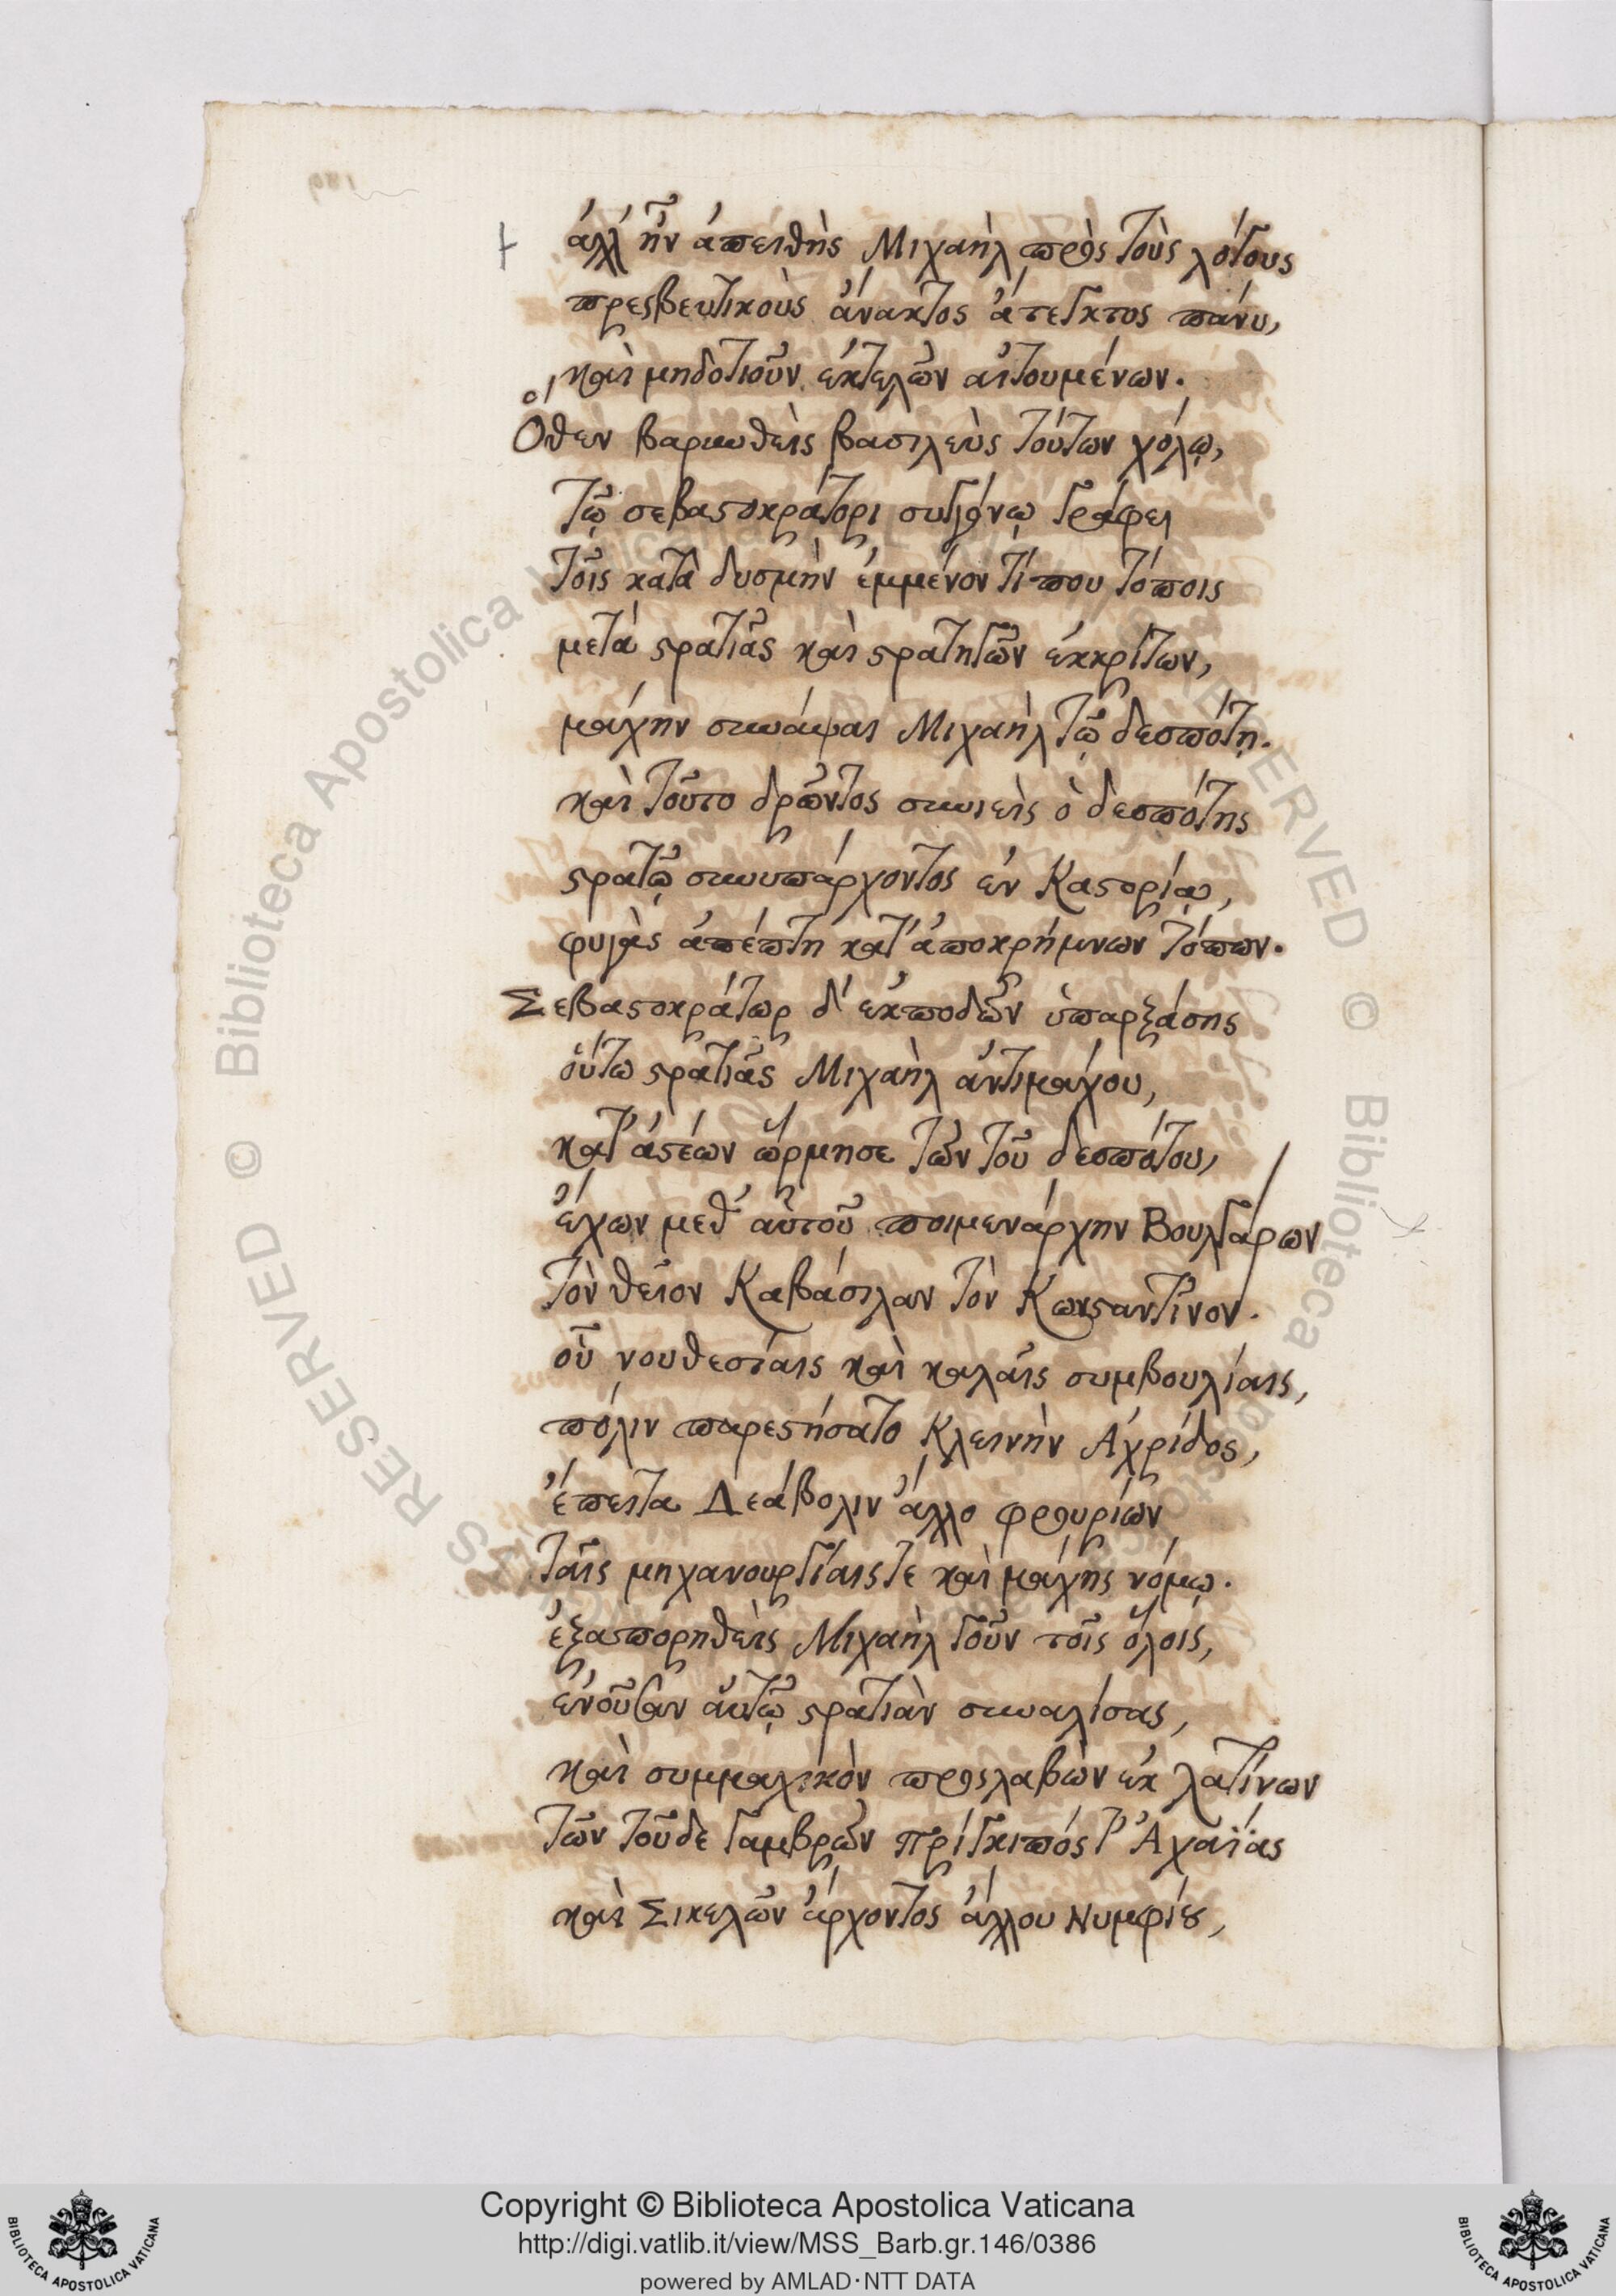 ἀλλ' ἦν ἀπειθὴς Μιχαὴλ πρὸς τοὺς λόγους
πρεσβευτικοὺς ἄνακτος ἄτεγκτος πάνυ,
καὶ μηδοτιοῦν ἐκτελῶν αἰτουμένων.
Ὅθεν βαρυνθεὶς βασιλεὺς τούτων χόλῳ,
τῷ σεβαστοκράτορι συγγόνῳ γράφει
τοῖς κατὰ δυσμὴν ἐμμένον τί που τόποις
μετὰ στρατιᾶς καὶ στρατηγῶν ἐκκρίτων,
μάχην συνάψαι Μιχαὴλ τῷ δεσπότῃ.
καὶ τοῦτο δρῶντος συνιεὶς ὁ δεσπότης
στρατῷ συνυπάρχοντος ἐν Καστορίᾳ,
φυγὰς ἀπέπτη κατ' ἀποκρήμνων τόπων.
Σεβαστοκράτωρ δ' ἐκποδῶν ὑπαρξάσης
οὕτω στρατιᾶς Μιχαὴλ ἀντιμάχου,
κατ' ἀστέων ὥρμησε τῶν τοῦ δεσπότου,
ἔχων μεθ' αὑτοῦ ποιμενάρχην Βουλγάρων
τὸν θεῖον Καβάσιλαν τὸν Κωνσταντῖνον.
οὗ νουθεσίαις καὶ καλαῖς συμβουλίαις,
πόλιν παρεστήσατο Κλεινὴν Ἀχρίδος,
ἔπειτα Δεάβολιν ἄλλο φρουρίων
ταῖς μηχανουργίαις τε καὶ μάχης νόμῳ.
ἐξαπορηθεὶς Μιχαὴλ γοῦν τοῖς ὅλοις,
ἐνοῦσαν αὐτῷ στρατιὰν συναλίσας,
καὶ συμμαχικὸν προσλαβὼν ἐκ λατίνων
τῶν τοῦδε γαμβρῶν πρίγκιπός τ' Ἀχαΐας
καὶ Σικελῶν ἄρχοντος ἄλλου Νυμφίου,
© Biblioteca Apostolica Vaticana
RIGHTS RESERVED
Copyright © Biblioteca Apostolica Vaticana
http://digi.vatlib.it/view/MSS_Barb.gr.146/0386
powered by AMLAD·NTT DATA
BIBLIOTECA APOSTOLICA VATICANA
BIBLIOTECA APOSTOLICA VATICANA